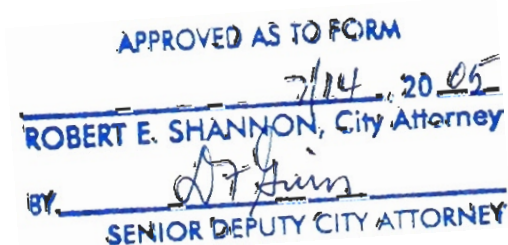 APPROVED AS TO FORM
7/14, 20 05
ROBERT E. SHANNON, City Attorney
BY
SENIOR DEPUTY CITY ATTORNEY